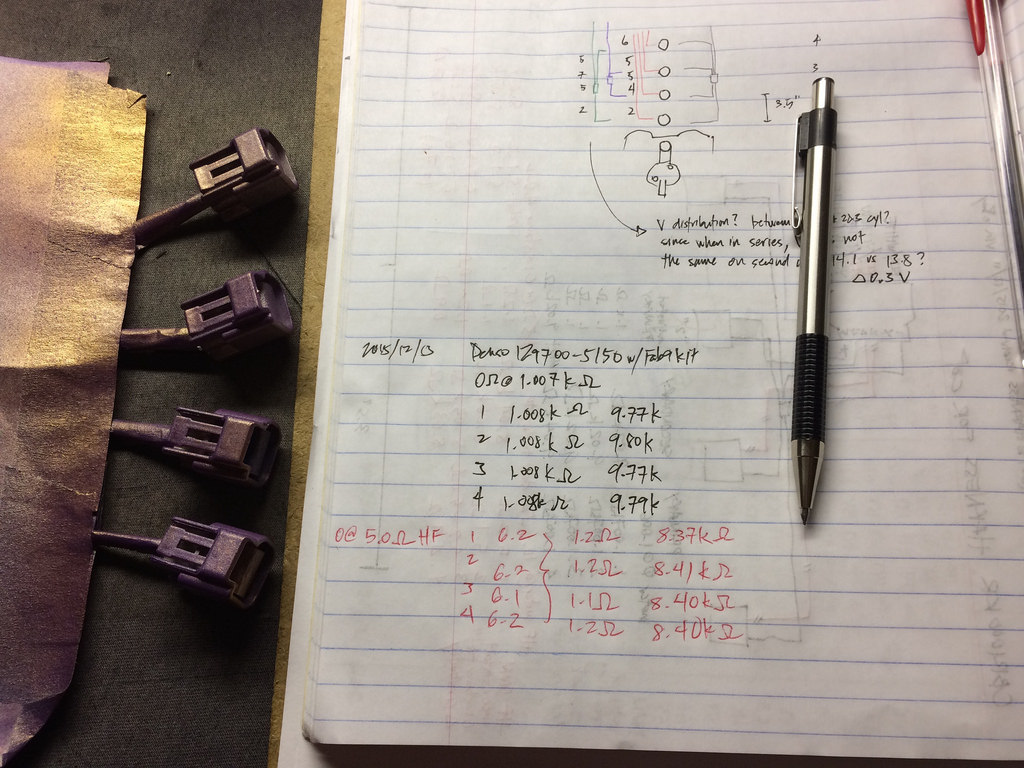 6
5
5
7
3
5
4
2
2
4
3
3.5"
V distribution? between 2&3 cyl?
since when in series, not
the same on second 14.1 vs 13.8?
△0.3V
2015/12/13 Denso 129700-5150 w/
0Ω@ 1.007kΩ
1 1.008kΩ 9.77k
2 1.008kΩ 9.80k
3 1.008kΩ 9.77k
4 1.008kΩ 9.79k
0@ 5.0Ω HF 1 6.2 1.2Ω 8.37kΩ
2 6.2 1.2Ω 8.41kΩ
3 6.1 1.1Ω 8.40kΩ
4 6.2 1.2Ω 8.40kΩ